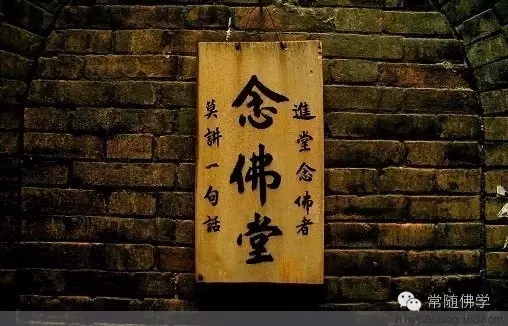 進堂念佛者
念佛堂
莫講一句話
常随佛学